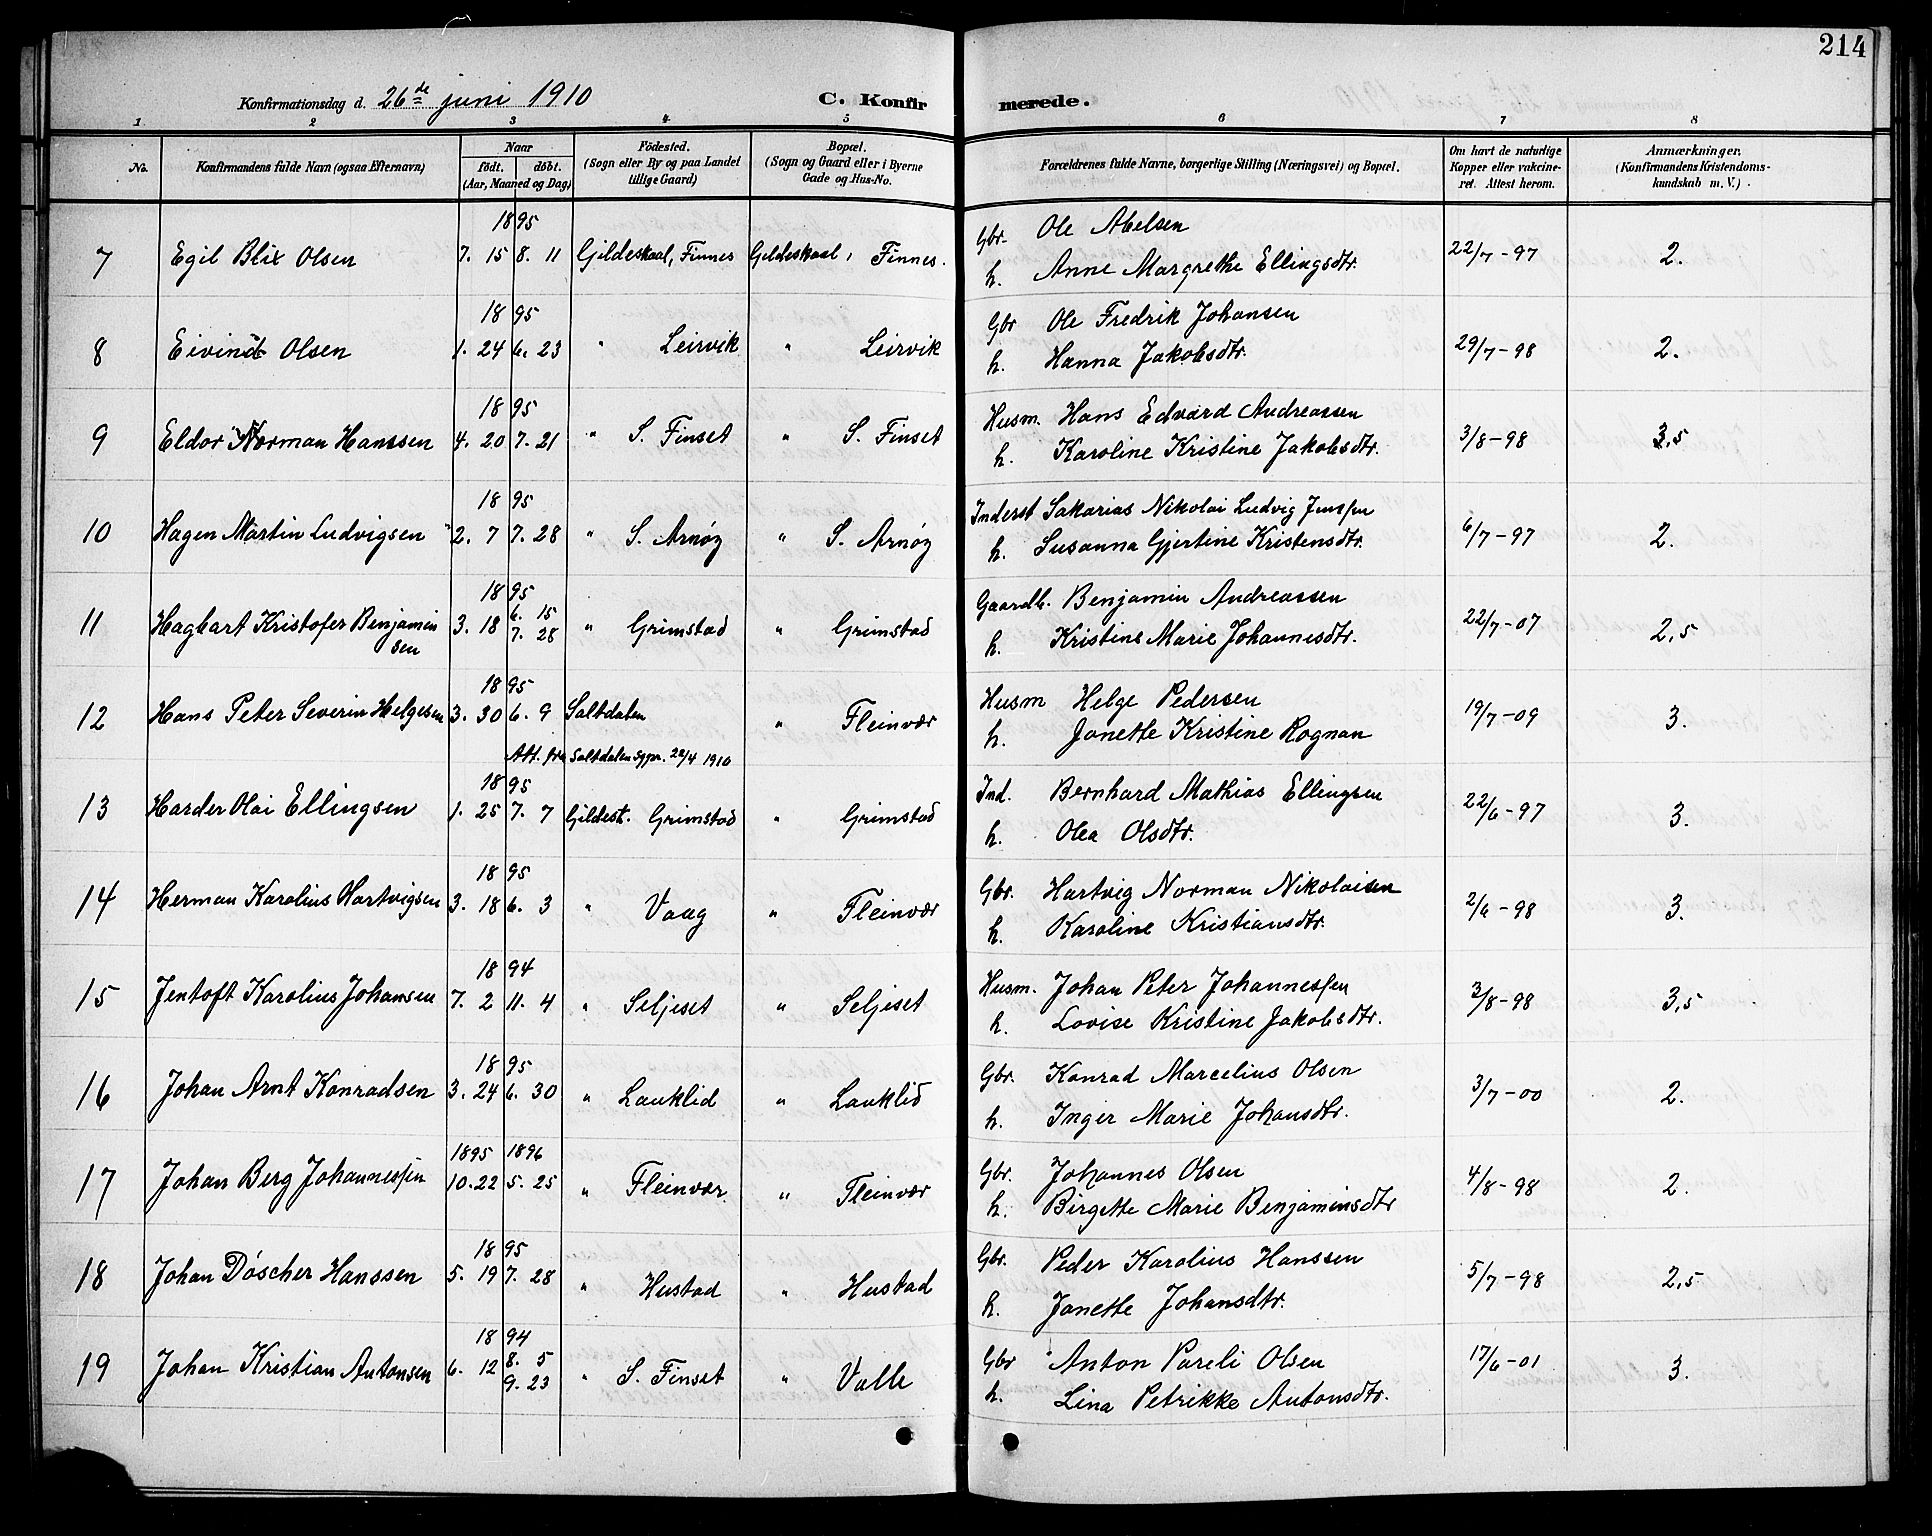 214
Konfirmationsdag d. 26de juni 1910 C. Konfirmerede.
1 2 3 4 5 6 7 8
No. Konfirmandens fulde Navn (ogsaa Efternavn) Naar født. døbt. (Aar, Maaned og Dag) Fødested. (Sogn eller By og paa Landet tillige Gaard) Bopæl. (Sogn og Gaard eller i Byerne Gade og Hus-No. Forældrenes fulde Navne, borgerlige Stilling (Næringsvei) og Bopæl. Om havt de naturlige Kopper eller vakcineret. Attest herom. Anmærkninger. (Konfirmandens Kristendomskundskab m. V.).
1895 Gbr. Ole Abelsen
7 Egil Blix Olsen 7. 15 8. 11 Gildeskaal, Finnes Gildeskaal, Finnes. 22/7-97 2.
h. Anne Margrethe Ellingsdtr.
1895 Gbr Ole Fredrik Johansen
8 Eivind Olsen 1. 24 6. 23 " Leirvik " Leirvik 29/7-98 2.
h. Hanna Jakobsdtr.
1895 Husm. Hans Edvard Andreassen
9 Eldor Norman Hanssen 4. 20 7. 21 " S. Finset " S. Finset 3/8-98 3,5
h. Karoline Kristine Jakobsdtr.
1895 Inderst Sakarias Nikolai Ludvig Jenssen
10 Hagen Martin Ludvigsen 2. 7 7. 28 " S. Arnøy " S. Arnøy 6/7-97 2.
h. Susanna Gjertine Kristensdtr.
1895 Gaardb. Benjamin Andreassen
6. 15
11 Hagbart Kristofer Benjamin 3. 18 7. 28 " Grimstad " Grimstad 22/7-07 2,5
sen h. Kristine Marie Johannesdtr.
1895 Husm Helge Pedersen
12 Hans Peter Severin Helgesen 3. 30 6. 9 Saltdalen " Fleinvær 19/7-09 3.
h. Janette Kristine Rognan
Att. fra Saltdalen sgpr. 22/4 1910
1895 Ind. Bernhard Mathias Ellingsen
13 Harder Olai Ellingsen 1. 25 7. 7 Gildesk. Grimstad " Grimstad 22/6-97 3.
h. Olea Olsdtr.
1895 Gbr. Hartvig Norman Nikolaisen
14 Herman Karolius Hartvigsen 3. 18 6. 3 " Vaag " Fleinvær 2/6-98 3.
h. Karoline Kristiansdtr.
1894 Husm. Johan Peter Johannessen
15 Jentoft Karolius Johansen 7. 2 11. 4 " Seljeset " Seljeset 3/8-98 3,5
h. Lovise Kristine Jakobsdtr.
1895 Gbr. Konrad Marcelius Olsen
16 Johan Arnt Konradsen 3. 24 6. 30 " Lauklid " Lauklid 3/7-00 2.
h. Inger Marie Johansdtr.
1895 1896 Gbr. Johannes Olsen
17 Johan Berg Johannessen 10. 22 5. 25 " Fleinvær. " Fleinvær 4/8-98 2.
h. Birgette Marie Benjaminsdtr
1895 Gbr. Peder Karolius Hanssen
18 Johan Döscher Hanssen 5. 19 7. 28 " Hustad " Hustad 5/7-98 2,5
h. Janette Johansdtr.
1894 Gbr Anton Pareli Olsen
8. 5
19 Johan Kristian Antonsen 6. 12 9. 23 " S. Finset " Valle 17/6-01 3.
h. Lina Petrikke Antonsdtr.